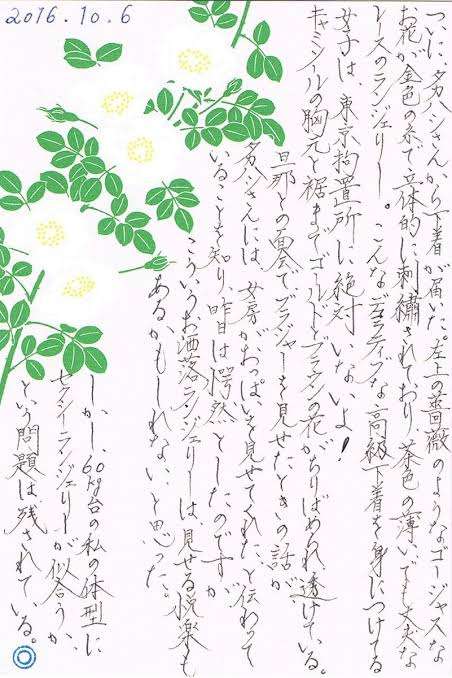 2016.10.6
ついに、夕力ハシさんから下着が届いた。左上の薔薇のようなゴージャスな
お花が金色の糸で立体的に刺繍されており、茶色の薄いでも丈夫な
レースのランジェリー。こんなデコラティブな高級下着を身につけてる
女子は、東京拘置所に絶対いないよ！
キャミソールの胸元と裾までゴールドとブラウンの花がちりばめられ、透けている。
旦那との面会で、ブラジャーを見せたときの話が、
夕力ハシさんには、女房がおっぱいを見せてくれたと伝わって
いることを知り、昨日は愕然としたのですが、
こういうお洒落ランジェリーは、見せる悦楽も
あるかもしれない、と思った。
しかし、60kg台の私の体型に
セクシーランジェリーが似合うか、
という問題は残されている。